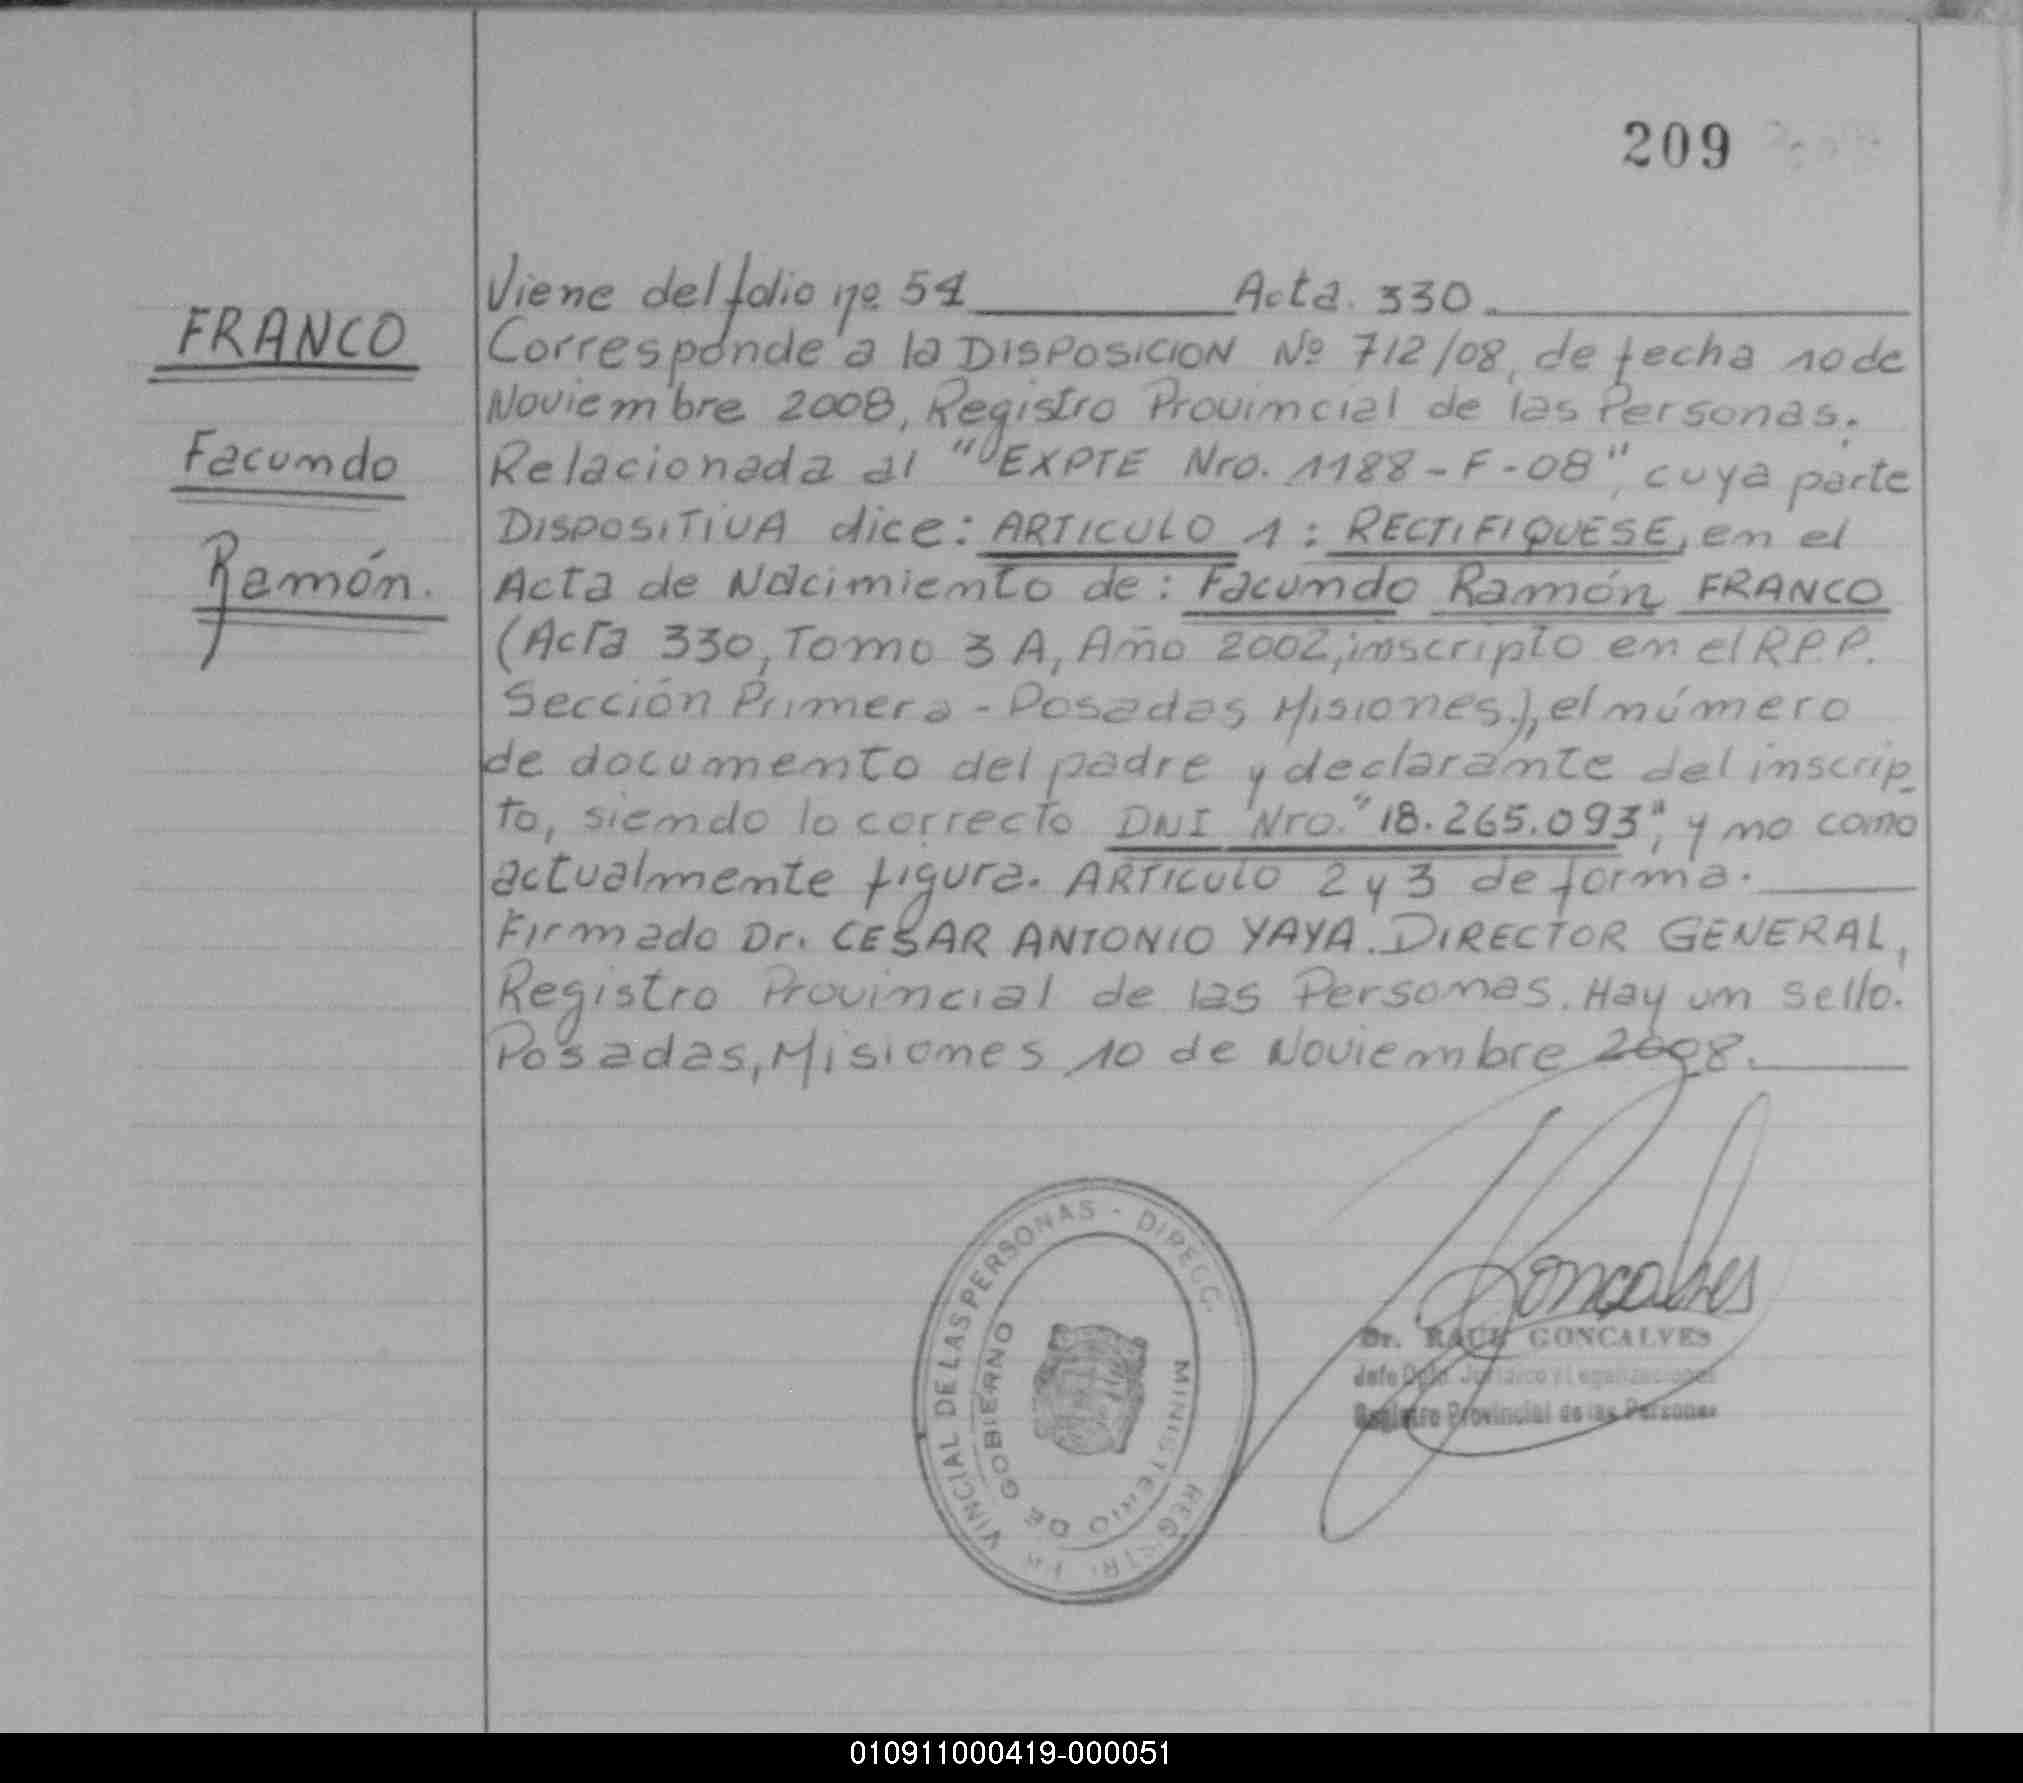 209
FRANCO
Facundo
Ramón.
Viene del folio nº 51 Acta. 330.
Corresponde a la DISPOSICION Nº 712/08, de fecha 10 de
Noviembre 2008, Registro Provincial de las Personas.
Relacionada al "EXPTE Nro. 1188-F-08", cuya parte
DISPOSITIVA dice: ARTICULO 1: RECTIFIQUESE, en el
Acta de Nacimiento de: Facundo Ramón FRANCO
(Acta 330, Tomo 3 A, Año 2002, inscripto en el R.P.P.
Sección Primera - Posadas Misiones.), el número
de documento del padre y declarante del inscrip-
to, siendo lo correcto DNI Nro. "18.265.093", y no como
actualmente figura. ARTICULO 2 y 3 de forma.
Firmado Dr. CESAR ANTONIO YAYA. DIRECTOR GENERAL,
Registro Provincial de las Personas. Hay un sello.
Posadas, Misiones 10 de Noviembre 2008.
VINCIAL DE LAS PERSONAS - DIRECC.
MINISTERIO DE GOBIERNO
Goncalves
Dr. RAUL GONCALVES
Jefe Dpto. Jurídico y Legalizaciones
Registro Provincial de las Personas
010911000419-000051